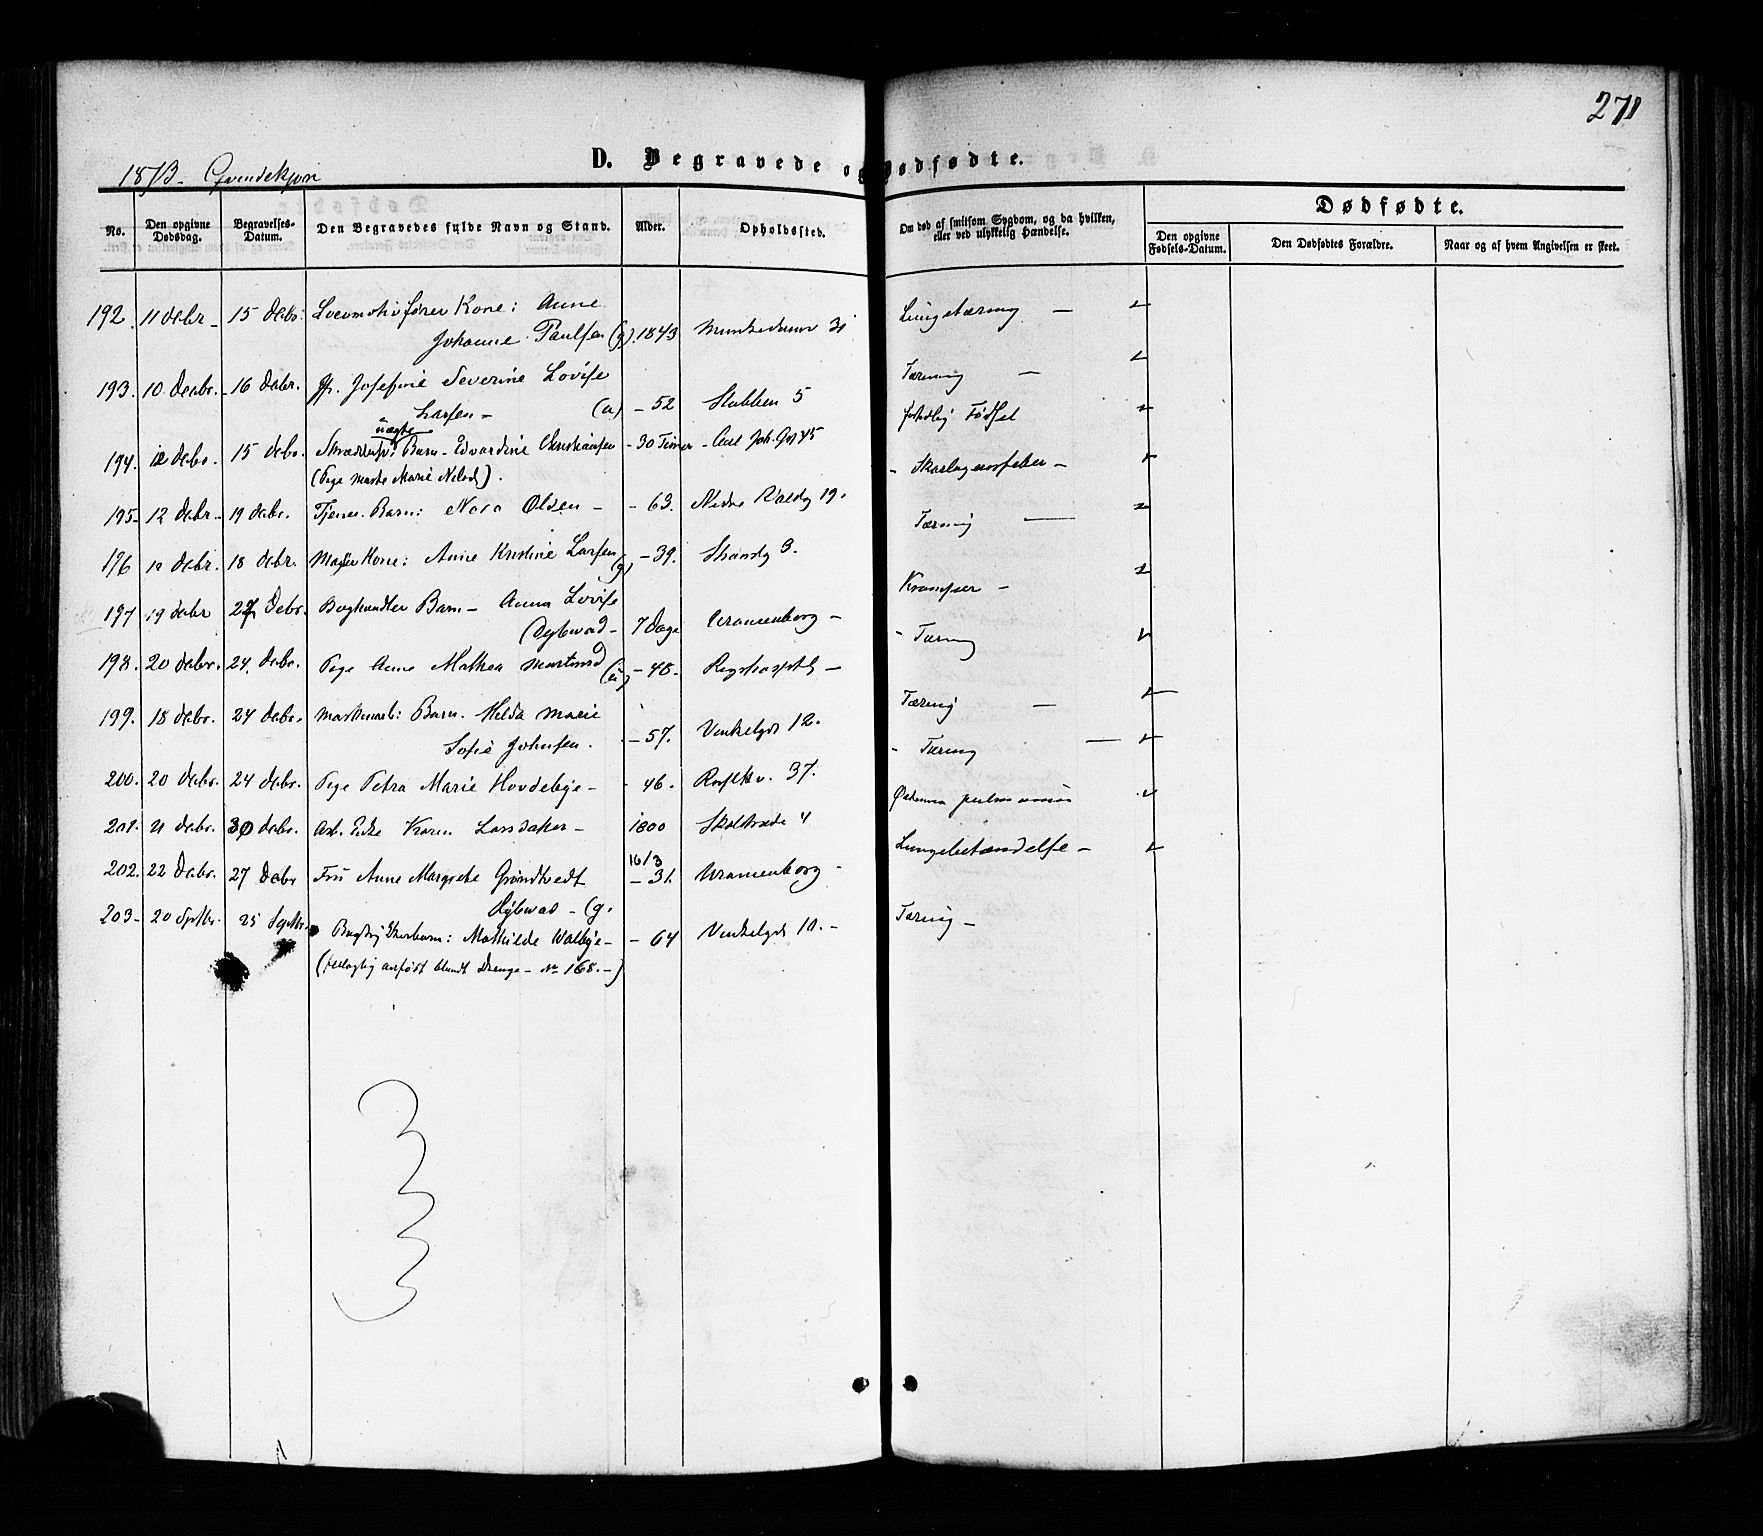 271
1873. Qvindekjøn
D. Begravede og Dødfødte.
No.
Den opgivne Dødsdag.
Begravelses-Datum.
Den Begravedes fulde Navn og Stand.
Alder.
Opholdssted.
Om død af smitsom Sygdom, og da hvilken, eller ved ulykkelig Hændelse.
Dødfødte.
Den opgivne Fødsels-Datum.
Den Dødfødtes Forældre.
Naar og af hvem Angivelsen er skeet.
192. 11 Debr. 15 Debr. Locomotivfører Kone: Anne
Johanne Paulsen (g). 1843 Munkedamv 31 Lungetæring
193. 10 Decbr. 16 Debr. Josefine Severine Lovise
Larsen (u) - 52 Stubben 5 Tæring
uægte
194. 12 Debr. 15 Debr. Barn - Edvardine Christiansen - 30 Timer - Carl Joh. G. 45 Fødsel
(Pige Marie )
195. 12 Debr. 19 Debr. Tjener. Barn: Nora Olsen - 63. Nedre 19. Skarlagensfeber
196 12 Debr. 18 Debr. Kone: Anne Kristine Larsen (g) - 39. Strandg 3. Tæring
197 19 Debr 27 Debr. Boghandler Barn - Anna Lovise
Dybwad - 7 Dage Uranienborg - Kramper -
198. 20 Debr. 24. Debr. Pige Anne Mathea (u) - 48. Rigshospital - Tæring
199. 18 Debr. 24 Debr. Barn. Hilda Marie
Sofie Johnsen. - 57. Vinkelgd 12. Tæring
200. 20 Debr. 24 Debr. Pige Petra Marie Hovdebye - 46. 37. Tæring
201. 21 Debr. 30 Debr. Arb. Enke Karen - 1800 4 Oedema pulmonum
202. 22 Debr. 27 Debr Fru Anne Margrete Grøndtvedt
Dybwad - (g. 16/3 - 31. Uranienborg - Lungebetændelse -
203 - 20 Septbr. 25 Septbr. Barn: Mathilde Walbye - - 64 Vinkelgd 10. - Tæring -
(feilagtig anført blandt Drenge - No 168. -)